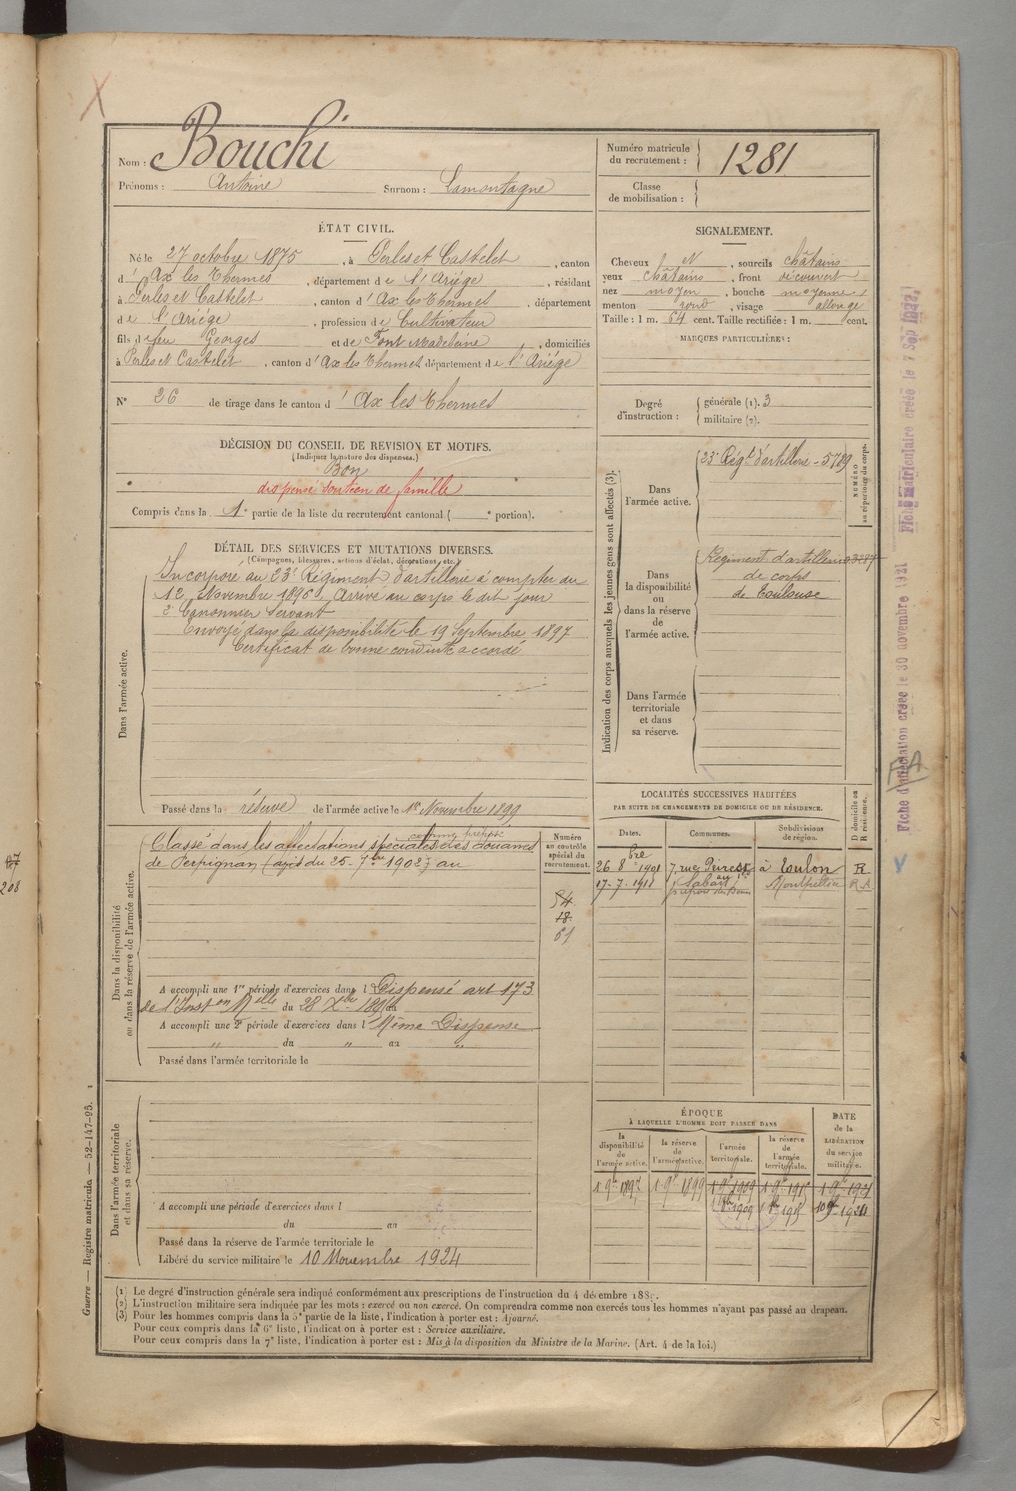 Nom : Bouchi
Prénoms : Antoine Surnom : Lamontagne
Numéro matricule du recrutement : 1281
Classe de mobilisation :
ÉTAT CIVIL.
Né le 27 octobre 1875, à Perles et Castelet, canton
d'Ax les Thermes, département de l'Ariége, résidant
à Perles et Castelet, canton d'Ax les Thermes, département
de l'Ariége, profession de Cultivateur
fils de feu Georges et de Font Madeleine, domiciliés
à Perles et Castelet, canton d'Ax les Thermes département de l'Ariége
N° 26 de tirage dans le canton d'Ax les Thermes
SIGNALEMENT.
Cheveux N, sourcils châtains
yeux châtains, front découvert
nez moyen, bouche moyenne
menton rond, visage allongé
Taille : 1 m. 64 cent. Taille rectifiée : 1 m. cent.
MARQUES PARTICULIÈRES :
Degré d'instruction : générale (1). 3
militaire (2).
DÉCISION DU CONSEIL DE REVISION ET MOTIFS.
(Indiquer la nature des dispenses.)
Bon
dispensé soutien de famille
Compris dans la 1e partie de la liste du recrutement cantonal ( e portion).
DÉTAIL DES SERVICES ET MUTATIONS DIVERSES.
(Campagnes, blessures, actions d'éclat, décorations, etc.)
Dans l'armée active.
Incorporé au 23e Régiment d'artillerie à compter du
12 Novembre 1896. Arrivé au corps le dit jour
2e Canonnier Servant
Envoyé dans la disponibilité le 19 Septembre 1897
Certificat de bonne conduite accordé
Passé dans la réserve de l'armée active le 1er Novembre 1899
Indication des corps auxquels les jeunes gens sont affectés (3).
NUMÉRO au répertoire du corps.
Dans l'armée active.
23e Régt d'artillerie - 5709
Dans la disponibilité ou dans la réserve de l'armée active.
Régiment d'artillerie
de corps
de Toulouse
Dans l'armée territoriale et dans sa réserve.
Dans la disponibilité ou dans la réserve de l'armée active.
comme préposé
Classé dans les affectations spéciales des douanes
de Perpignan (avis du 25-7bre 1902) au
Numéro au contrôle spécial du recrutement.
54
18
61
A accompli une 1re période d'exercices dans l Dispensé art 173
de l'Inston Melle du 28 Xbre 1895 au
A accompli une 2e période d'exercices dans l Même Dispense
" du " au "
Passé dans l'armée territoriale le
LOCALITÉS SUCCESSIVES HABITÉES
PAR SUITE DE CHANGEMENTS DE DOMICILE OU DE RÉSIDENCE.
Dates. Communes. Subdivisions de région. D domicile ou R résidence.
26 8bre 1901 7, rue Peiresc à Toulon R
17-7-1911 Montpellier
Dans l'armée territoriale et dans sa réserve.
A accompli une période d'exercices dans l
du au
Passé dans la réserve de l'armée territoriale le
Libéré du service militaire le 10 Novembre 1924
ÉPOQUE
À LAQUELLE L'HOMME DOIT PASSER DANS
la disponibilité de l'armée active. la réserve de l'armée active. l'armée territoriale. la réserve de l'armée territoriale. DATE de la LIBÉRATION du service militaire.
1 9b 1897 1 9b 1899 1 9b 1909 1 9b 1915 1 9b 1921
1909 1915 10 9b 1924
(1) Le degré d'instruction générale sera indiqué conformément aux prescriptions de l'instruction du 4 décembre 1889.
(2) L'instruction militaire sera indiquée par les mots : exercé ou non exercé. On comprendra comme non exercés tous les hommes n'ayant pas passé au drapeau.
(3) Pour les hommes compris dans la 5e partie de la liste, l'indication à porter est : Ajourné.
Pour ceux compris dans la 6e liste, l'indication à porter est : Service auxiliaire.
Pour ceux compris dans la 7e liste, l'indication à porter est : Mis à la disposition du Ministre de la Marine. (Art. 4 de la loi.)
Guerre — Registre matricule — 52-147-95.
Fiche d'affectation créée le 30 novembre 1921
Fiche matriculaire créée le 7 Sep 1922
208